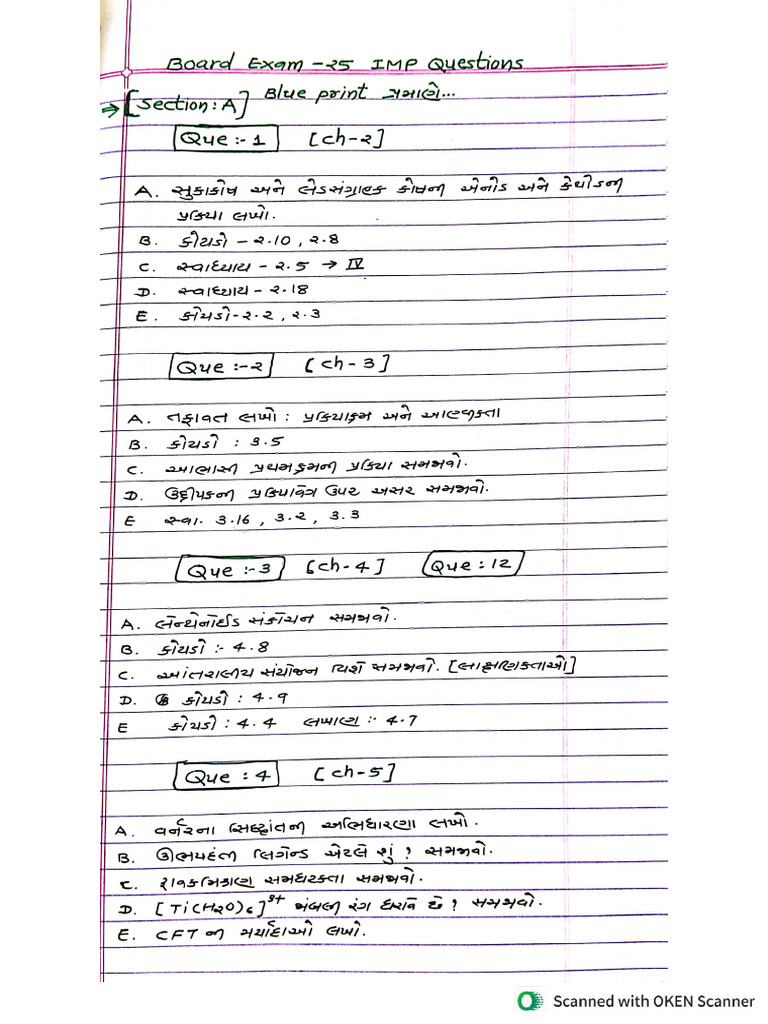 Board Exam -૨5 IMP Questions
→ [Section: A] Blue print પ્રમાણે...
Que :- 1 [ch-૨]
A. સુકાકોષ અને લેડસંગ્રાહક કોષની એનોડ અને કેથોડની
પ્રક્રિયા લખો.
B. કોયડો - ૨.10 , ૨.8
C. સ્વાધ્યાય - ૨.5 → IV
D. સ્વાધ્યાય - ૨.18
E. કોયડો - ૨.૨ , ૨.3
Que :- ૨ [ch-3]
A. તફાવત લખો : પ્રક્રિયાક્રમ અને આણ્વીકતા
B. કોયડો : 3.5
C. આભાસી પ્રથમક્રમની પ્રક્રિયા સમજાવો.
D. ઉદ્દીપકની પ્રક્રિયાવેગ ઉપર અસર સમજાવો.
E સ્વા. 3.16 , 3.૨ , 3.3
Que :- 3 [ch-4] Que : 12
A. લેન્થેનોઈડ સંકોચન સમજાવો.
B. કોયડો :- 4.8
C. આંતરાલીય સંયોજન વિશે સમજાવો. [લાક્ષણિકતાઓ]
D. કોયડો : 4.9
E કોયડો : 4.4 લખાણ :- 4.7
Que : 4 [ch-5]
A. વર્નરના સિદ્ધાંતની અભિધારણા લખો.
B. ઊભયદંતી લિગેન્ડ એટલે શું? સમજાવો.
C. દ્રાવકમિશ્રણ સમઘટકતા સમજાવો.
D. [Ti(H૨O)6]3+ જાંબલી રંગ ધરાવે છે? સમજાવો.
E. CFT ની મર્યાદાઓ લખો.
Scanned with OKEN Scanner